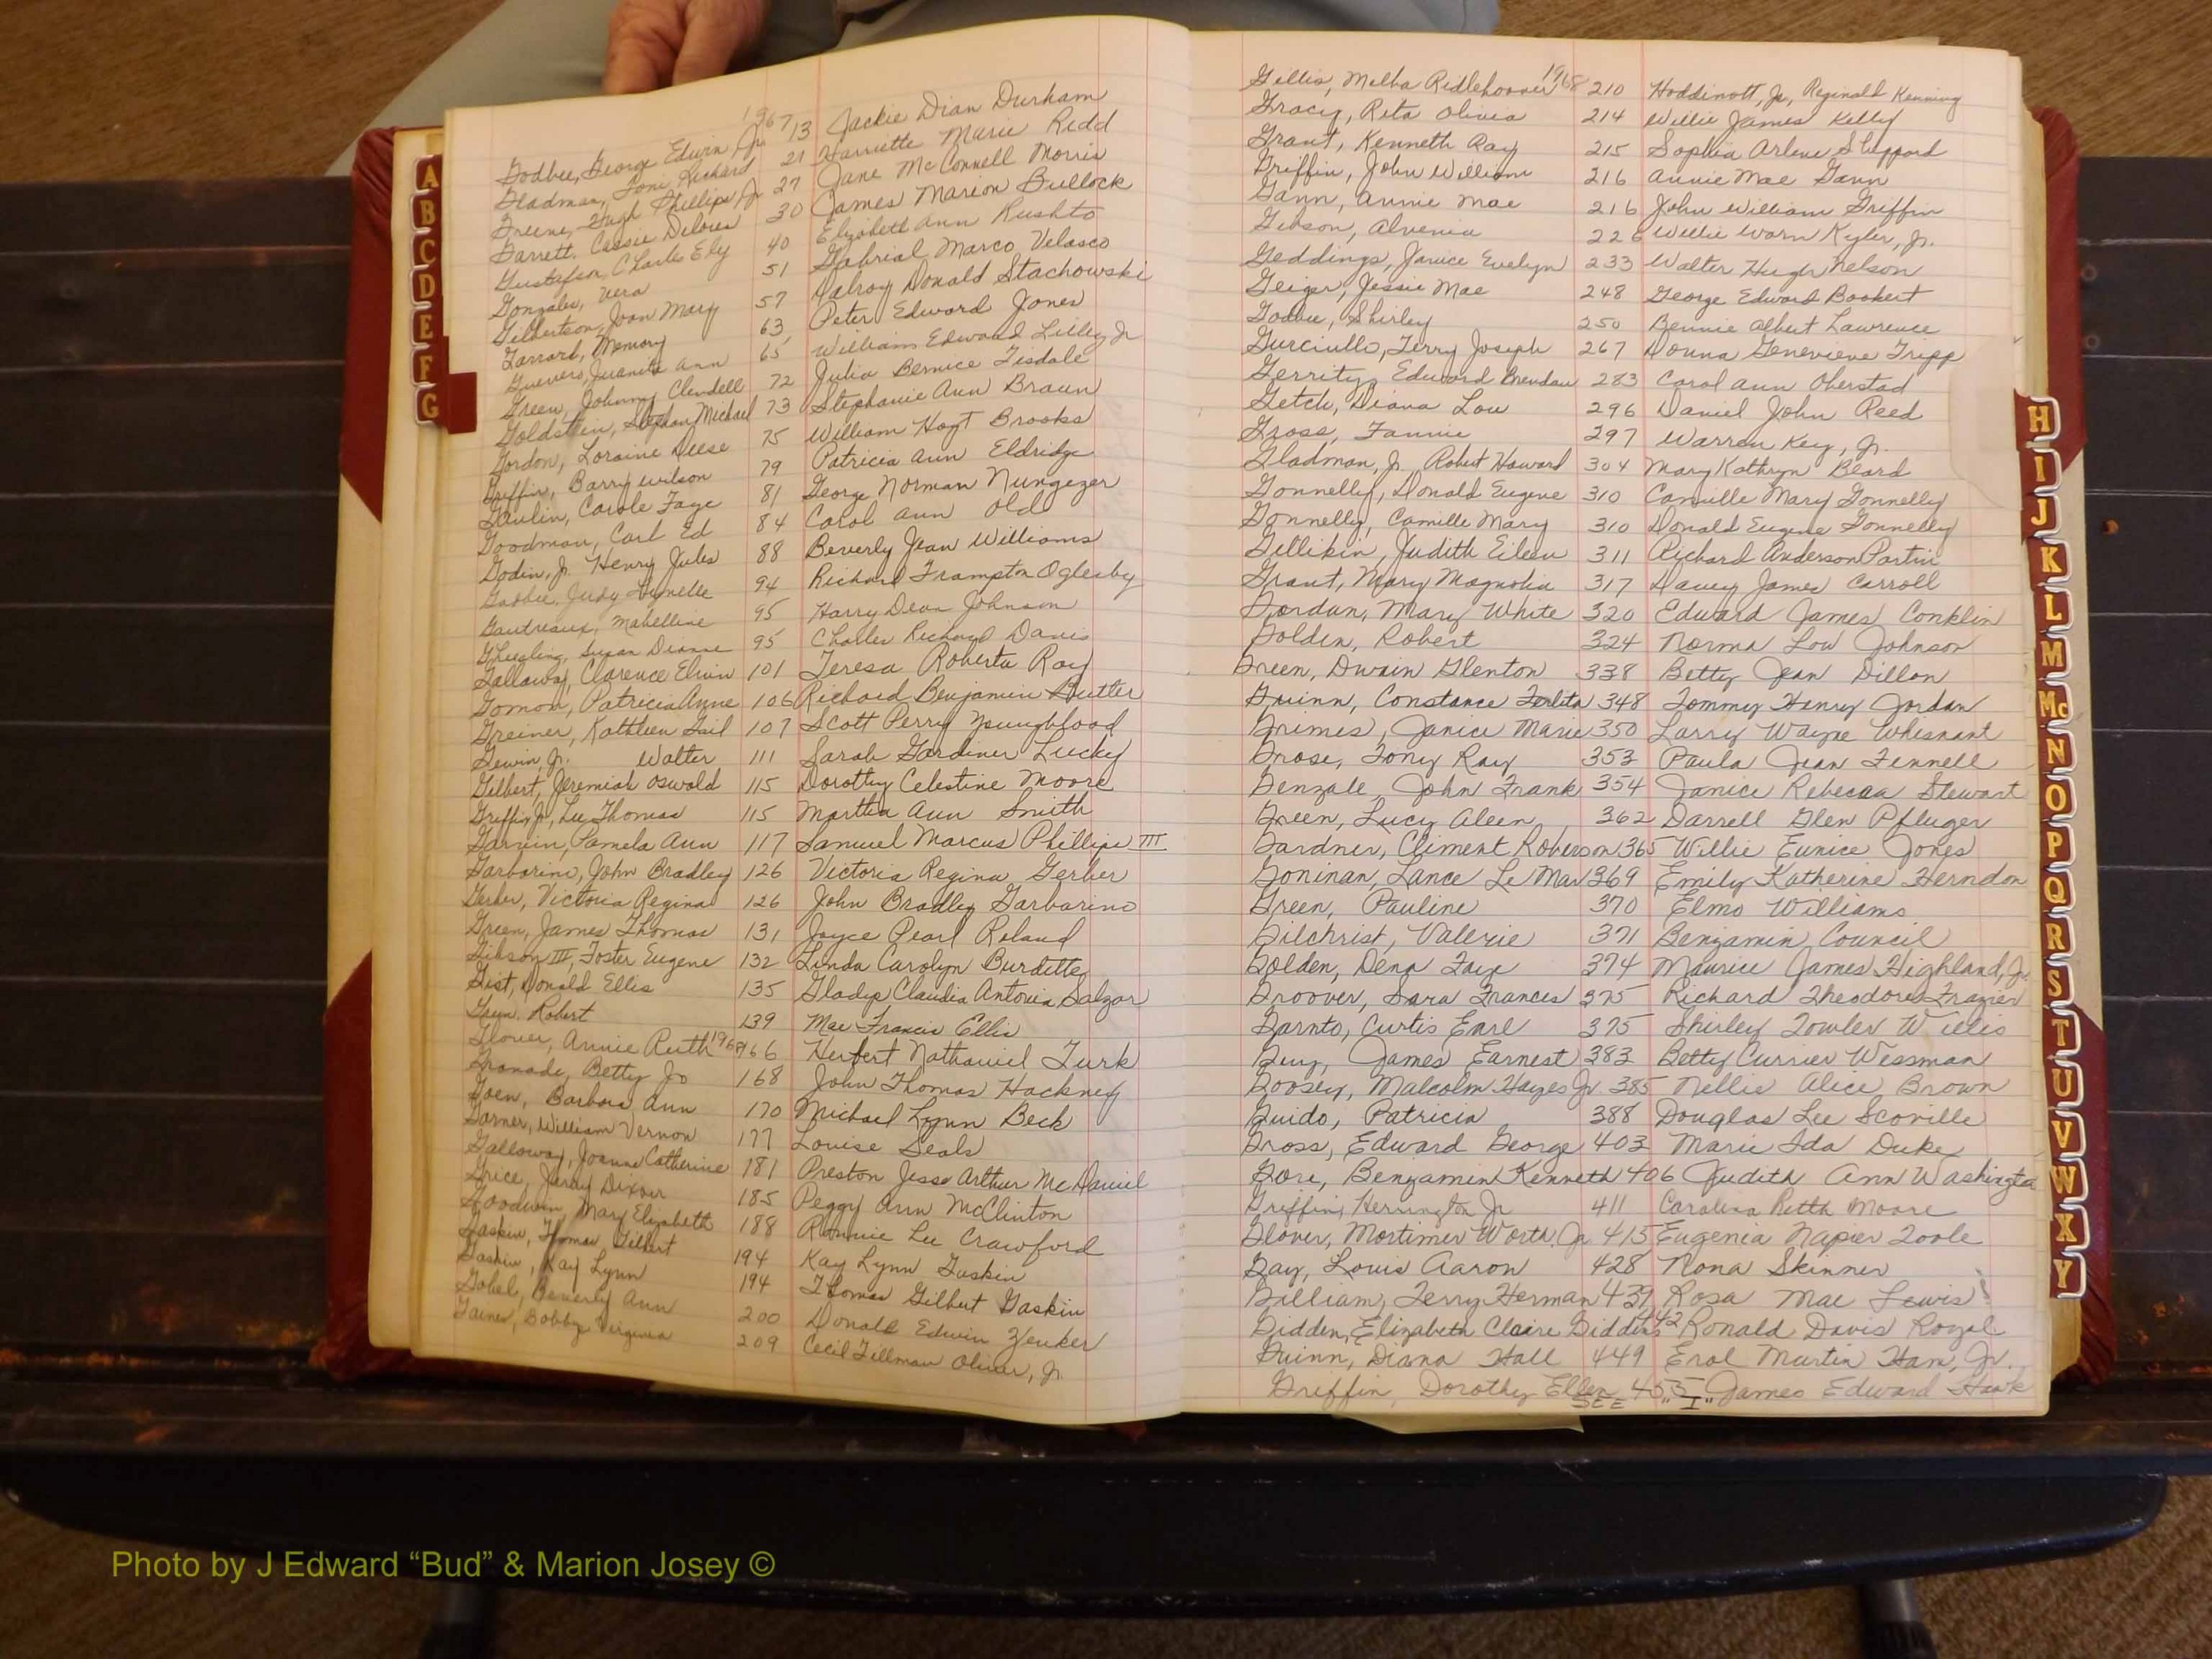 1967
Godbee, George Edwin, Jr. 13 Jackie Dian Durham
Gladman, Toni Richard 21 Harriette Marie Redd
Greene, Hugh Phillips, Jr 27 Jane McConnell Morris
Garrett, Cassie Delores 30 James Marion Bullock
Gustafson, Charles Ely 40 Elizabeth Ann Rushto
Gonzales, Vera 51 Gabrial Marco Velasco
Gilbertson, Joan Mary 57 Donald Stachowski
Garrard, Memory 63 Peter Edward Jones
Guevero, Juanita Ann 65 William Edward Lilley, Jr
Green, Johnny Clendell 72 Julia Bernice Tisdale
Goldstein, Stephan Michael 73 Stephanie Ann Braun
Gordon, Loraine Deese 75 William Hoyt Brooks
Griffin, Barry Wilson 79 Patricia Ann Eldridge
Gaulin, Carole Faye 81 George Norman Nungezer
Goodman, Carl Ed 84 Carol Ann Old
Godin, Jr. Henry Jules 88 Beverly Jean Williams
Judy Lynelle 94 Richard Frampton Oglesby
Gautreaux, Mabelline 95 Harry Dean Johnson
Gheesling, Susan Dianne 95 Charles Richard Davis
Gallaway, Clarence Elvin 101 Teresa Roberta Ray
Gomon, Patricia Anne 106 Richard Benjamin Butler
Greiner, Kathleen Gail 107 Scott Perry Youngblood
Gewin, Jr. Walter 111 Sarah Gardiner Lucky
Gilbert, Jeremiah Oswald 115 Dorothy Celestine Moore
Griffin, Jr, Lee Thomas 115 Martha Ann Smith
Garvin, Pamela Ann 117 Samuel Marcus Phillips III
Garbarino, John Bradley 126 Victoria Regina Gerber
Gerber, Victoria Regina 126 John Bradley Garbarino
Green, James Thomas 131 Joyce Pearl Roland
Gibson III, Foster Eugene 132 Linda Carolyn Burdette
Gist, Donald Ellis 135 Gladys Claudia Antonia Salzar
Robert 139 Mae Francis Ellis
Glover, Annie Ruth 1968 166 Herbert Nathaniel Turk
Granade, Betty Jo 168 John Thomas Hackney
Goen, Barbara Ann 170 Michael Lynn Beck
Garner, William Vernon 177 Louise Seals
Galloway, Joanne Catherine 181 Preston Jesse Arthur McDaniel
Grice, Jerry Dixon 185 Peggy Ann McClinton
Goodwin, Mary Elizabeth 188 Ronnie Lee Crawford
Gaskin, Thomas Gilbert 194 Kay Lynn Gaskin
Gaskin, Kay Lynn 194 Thomas Gilbert Gaskin
Gobel, Beverly Ann 200 Donald Edwin Zeuker
Gaines, Bobby Virginia 209 Cecil Tillman Oliver, Jr.
A
B
C
D
E
F
G
Gillis, Melba Ridlehoover 1968 210 Hoddinott, Jr., Reginald Kenning
Gracey, Reta Olivia 214 Willie James Kelly
Grant, Kenneth Ray 215 Sophia Arlene Sheppard
Griffin, John William 216 Annie Mae Gann
Gann, Annie Mae 216 John William Griffin
Gibson, Alvenia 226 Willie Worn Kyler, Jr.
Geddings, Janice Evelyn 233 Walter Hugh Nelson
Geiger, Jessie Mae 248 George Edward Bookert
Godbee, Shirley 250 Bennie Albert Lawrence
Gurciullo, Terry Joseph 267 Donna Genevieve Tripp
Gerrity, Edward Brendan 283 Carol Ann Oberstad
Getch, Diana Lou 296 Daniel John Reed
Gross, Fannie 297 Warren Key, Jr.
Gladman, Jr. Robert Howard 304 Mary Kathryn Beard
Gonnelly, Donald Eugene 310 Camille Mary Gonnelly
Gonnelly, Camille Mary 310 Donald Eugene Gonnelly
Gillikin, Judith Eileen 311 Richard Anderson Partin
Grant, Mary Magnolia 317 Davey James Carroll
Gordan, Mary White 320 Edward James Conklin
Golden, Robert 324 Norma Lou Johnson
Green, Dwain Glenton 338 Betty Jean Dillon
Guinn, Constance 348 Tommy Henry Jordan
Grimes, Janice Marie 350 Larry Wayne Whisnant
Grose, Tony Ray 353 Paula Jean Fennell
Genzale, John Frank 354 Janice Rebecca Stewart
Green, Lucy Aleen 362 Darrell Glen Pfluger
Gardner, Climent Roberson 365 Willie Eunice Jones
Goninan, Lance Le Mar 369 Emily Katherine Herndon
Green, Pauline 370 Elmo Williams
Gilchrist, Valerie 371 Benjamin Council
Golden, Dena Faye 374 Maurice James Highland, Jr.
Groover, Sara Frances 375 Richard Theodore Frazier
Garnto, Curtis Earl 375 Shirley Towler Willis
Guy, James Earnest 383 Betty Currier Wessman
Goosey, Malcolm Hayes Jr. 385 Nellie Alice Brown
Guido, Patricia 388 Douglas Lee Scoville
Gross, Edward George 403 Marie Ida Duke
Gore, Benjamin Kenneth 406 Judith Ann Washington
Griffin, Herrington Jr 411 Carolina Ruth Moore
Glover, Mortimer Worth, Jr 415 Eugenia Napier Toole
Gay, Louis Aaron 428 Nona Skinner
Gilliam, Terry Herman 439 Rosa Mae Lewis
Gidden, Elizabeth Claire Giddens 442 Ronald Davis Royal
Guinn, Diana Hall 449 Erol Martin Ham, Jr.
Griffin, Dorothy Ellen 455 James Edward Hook
SEE "I"
H
I
J
K
L
M
Mc
N
O
P
Q
R
S
T
U
V
W
X
Y
Photo by J Edward “Bud” & Marion Josey ©